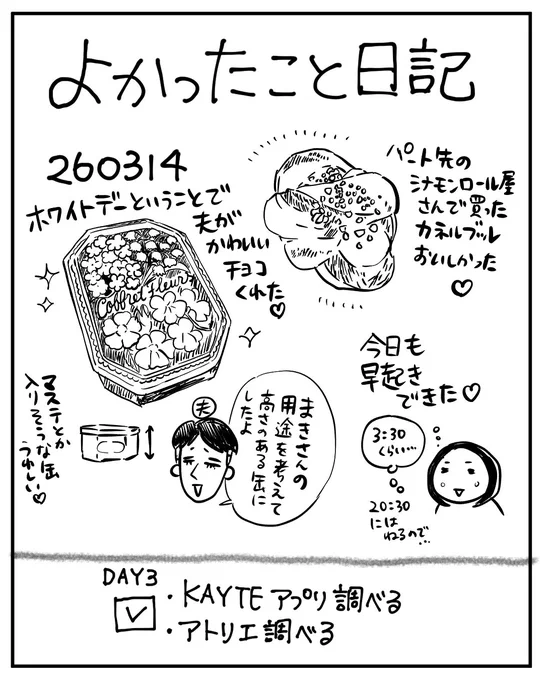 よかったこと日記
260314
ホワイトデーということで
夫が
かわいい
チョコ
くれた♡
Coffret Fleur
パート先の
シナモンロール屋
さんで買った
カネルブッレ
おいしかった
♡
今日も
早起き
できた♡
3:30
くらい…
20:30
には
ねるので…
マステとか
入りそうな缶
うれしい♡
夫
まきさんの
用途を考えて
高さのある缶に
したよ
DAY3
・KAYTEアプリ調べる
・アトリエ調べる